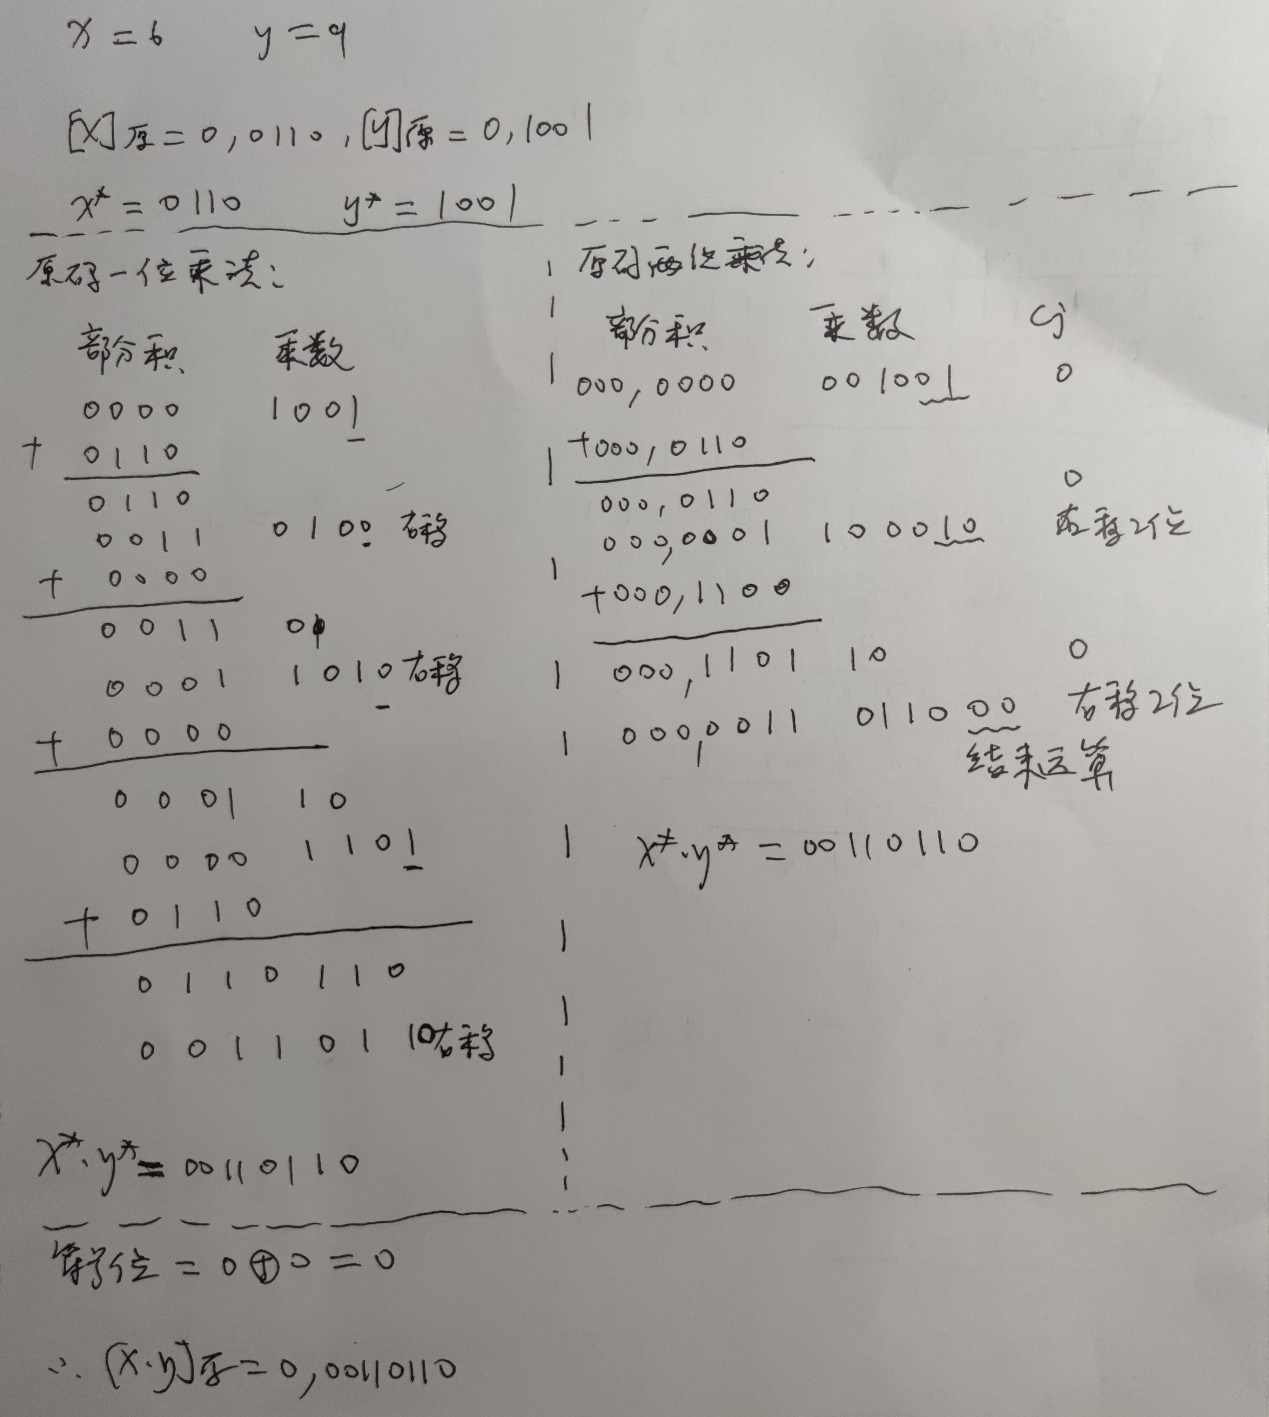 x = 6 y = 9
[X]原 = 0,0110 , [y]原 = 0,1001
x* = 0110 y* = 1001
原码一位乘法:
部分积 乘数
0000 1001
+ 0110
0110
0011 0100 右移
+ 0000
0011 01
0001 1010 右移
+ 0000
0001 10
0000 1101
+ 0110
0110 110
0011 01 10右移
x*·y* = 00110110
原码两位乘法:
部分积 乘数 Cj
000,0000 001001 0
+000,0110
000,0110 0
000,0001 100010 右移2位
+000,1100
000,1101 10 0
000,0011 011000 右移2位
结束运算
x*·y* = 00110110
符号位 = 0⊕0 = 0
∴ [x·y]原 = 0,00110110